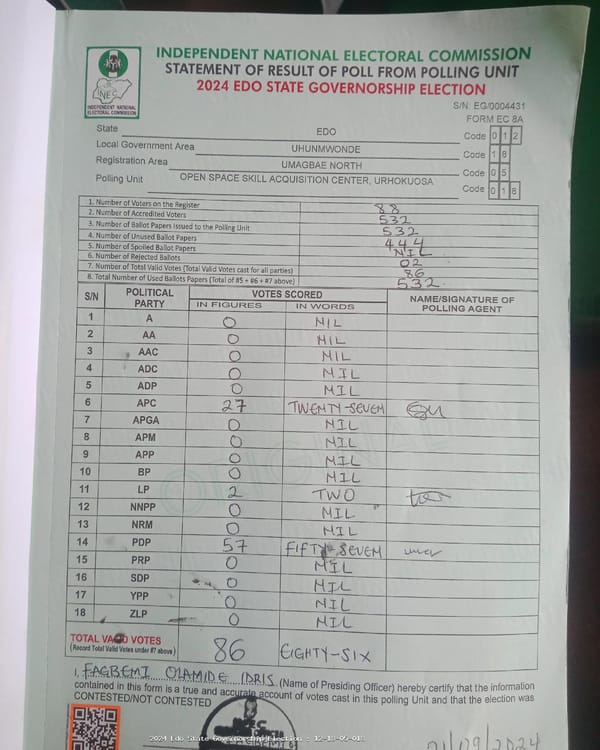 INDEPENDENT NATIONAL ELECTORAL COMMISSION
STATEMENT OF RESULT OF POLL FROM POLLING UNIT
2024 EDO STATE GOVERNORSHIP ELECTION
INEC
INDEPENDENT NATIONAL
ELECTORAL COMMISSION
S/N: EG/0004431
FORM EC 8A
State EDO Code 0 1 2
Local Government Area UHUNMWONDE Code 1 8
Registration Area UMAGBAE NORTH Code 0 5
Polling Unit OPEN SPACE SKILL ACQUISITION CENTER, URHOKUOSA Code 0 1 8
1. Number of Voters on the Register
2. Number of Accredited Voters 88
3. Number of Ballot Papers Issued to the Polling Unit 532
4. Number of Unused Ballot Papers 444
5. Number of Spoiled Ballot Papers NIL
6. Number of Rejected Ballots 02
7. Number of Total Valid Votes (Total Valid Votes cast for all parties) 86
8. Total Number of Used Ballots Papers (Total of #5 + #6 + #7 above) 532
S/N POLITICAL PARTY VOTES SCORED NAME/SIGNATURE OF POLLING AGENT
IN FIGURES IN WORDS
1 A 0 NIL
2 AA 0 NIL
3 AAC 0 NIL
4 ADC 0 NIL
5 ADP 0 NIL
6 APC 27 TWENTY-SEVEN
7 APGA 0 NIL
8 APM 0 NIL
9 APP 0 NIL
10 BP 0 NIL
11 LP 2 TWO
12 NNPP 0 NIL
13 NRM 0 NIL
14 PDP 57 FIFTY-SEVEN
15 PRP 0 NIL
16 SDP 0 NIL
17 YPP 0 NIL
18 ZLP 0 NIL
TOTAL VALID VOTES 86 EIGHTY-SIX
(Record Total Valid Votes under #7 above)
I, FAGBEMI OLAMIDE IDRIS (Name of Presiding Officer) hereby certify that the information
contained in this form is a true and accurate account of votes cast in this polling unit and that the election was
CONTESTED/NOT CONTESTED
2024 Edo State Governorship Election : 12-18-05-018
21/09/2024